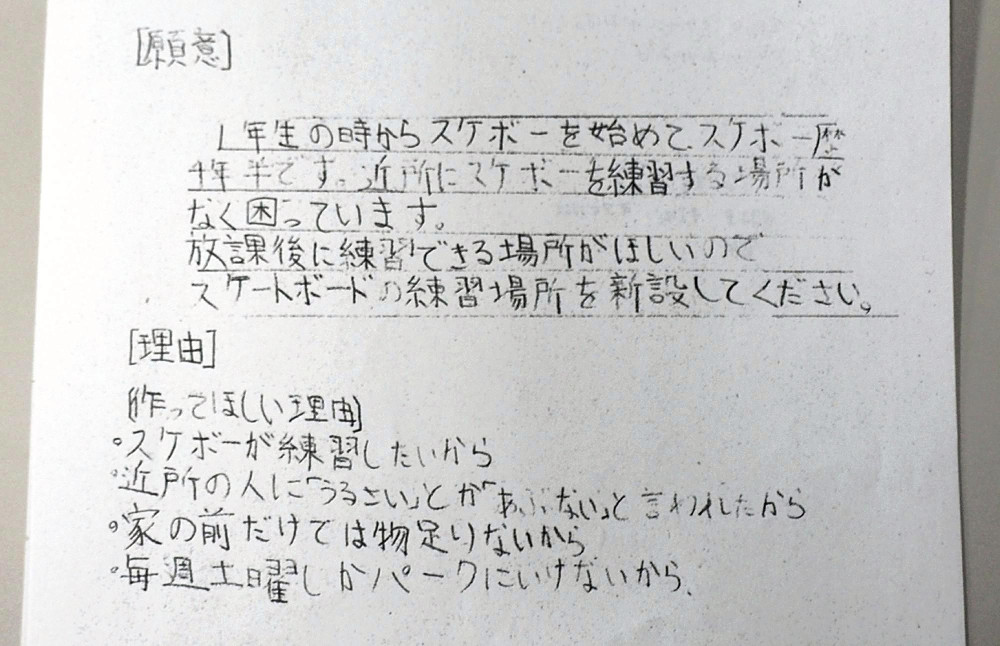 [願意]
1年生の時からスケボーを始めて、スケボー歴
4年半です。近所にスケボーを練習する場所が
なく困っています。
放課後に練習できる場所がほしいので
スケートボードの練習場所を新設してください。
[理由]
[作ってほしい理由]
・スケボーが練習したいから
・近所の人に「うるさい」とか「あぶない」と言われたから
・家の前だけでは物足りないから
・毎週土曜しかパークにいけないから、